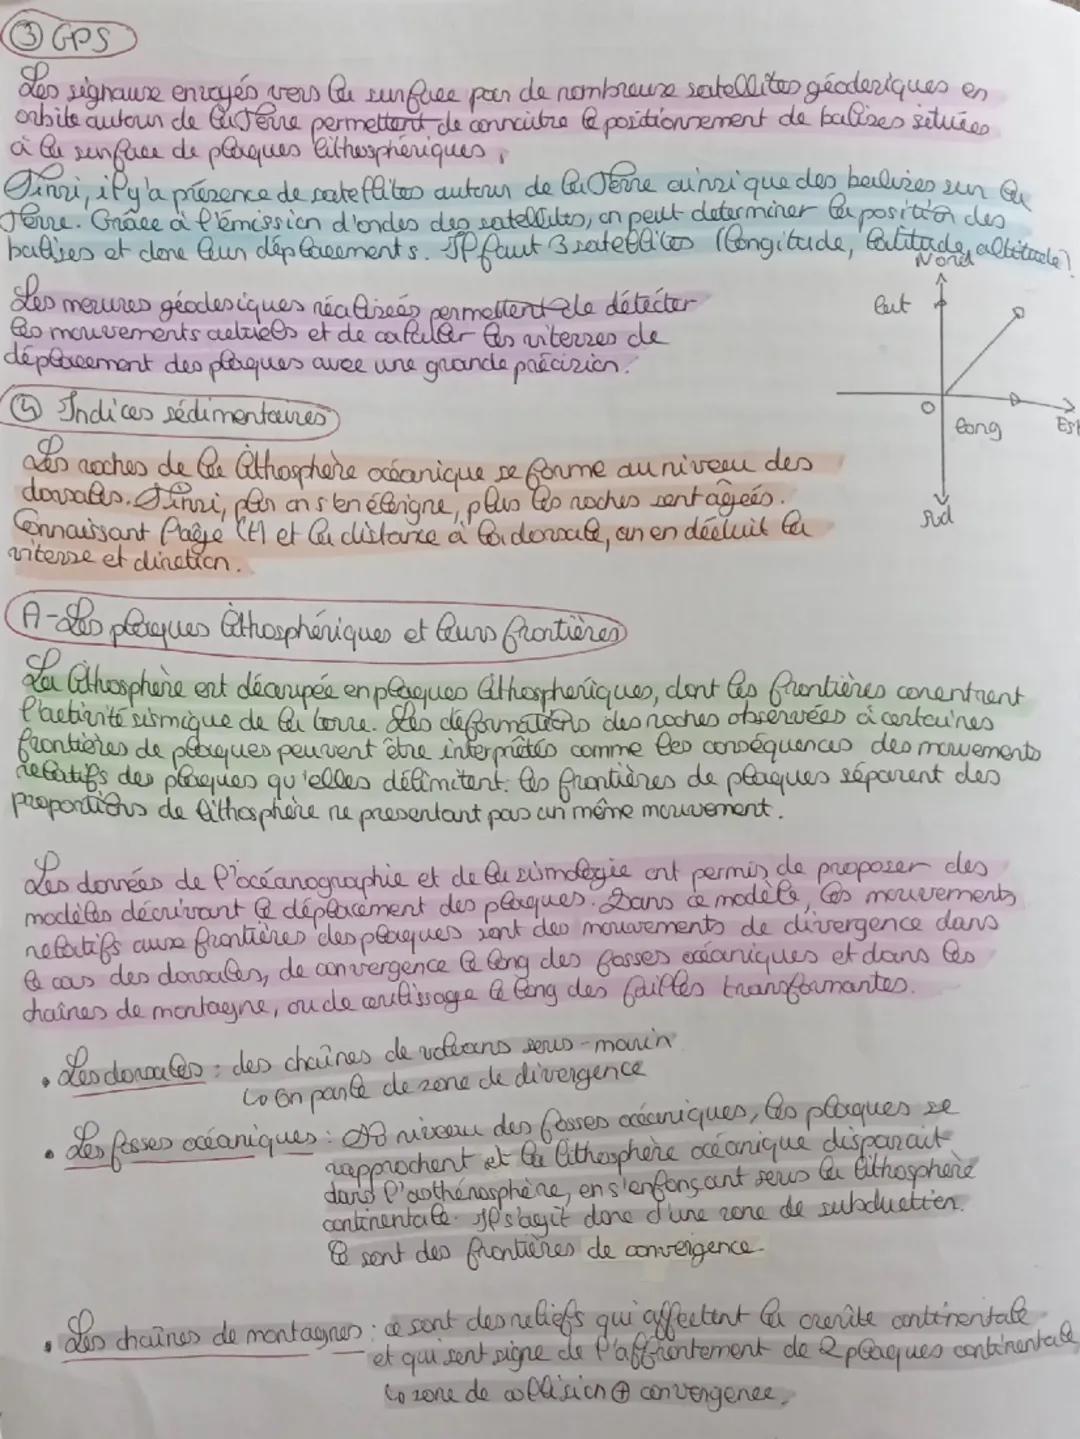 ③ GPS
Les signaux envoyés vers la surface par de nombreux satellites géodesiques en
orbite autour de la Terre permettent de connaitre le positionnement de balises situées
à la surface de plaques lithosphériques,
Ainsi, il y'a présence de satellites autour de la Terre ainsi que des balises sur la
Terre. Grâce à l'émission d'ondes des satellites, on peut determiner la position des
balises et donc leur déplacements. Il faut 3 satellites (longitude, latitude, altitude)
Nord
Les mesures géodesiques réalisées permettent de détecter
les mouvements actuels et de calculer les vitesses de
déplacement des plaques avec une grande précision.
lat
O
long
Est
Sud
④ Indices sédimentaires
Les roches de la lithosphère océanique se forme au niveau des
dorsales. Ainsi, plus on s'en éloigne, plus les roches sont âgées.
Connaissant l'age (t) et la distance à la dorsale, on en déduit la
vitesse et direction.
A-Les plaques lithosphériques et leurs frontières
La lithosphère est découpée en plaques lithospheriques, dont les frontières concentrent
l'activité sismique de la terre. Les déformations des roches observées à certaines
frontières de plaques peuvent être interprêtés comme les conséquences des mouvements
relatifs des plaques qu'elles délimitent. les frontières de plaques séparent des
proportions de lithosphère ne presentant pas un même mouvement.
Les données de l'océanographie et de la sismologie ont permis de proposer des
modèles décrivant le déplacement des plaques. Dans ce modèle, les mouvements
relatifs aux frontières des plaques sont des mouvements de divergence dans
le cas des dorsales, de convergence le long des fosses océaniques et dans les
chaînes de montagne, ou de coulissage le long des failles transformantes.
• Les dorsales : des chaînes de volcans sous-marin
↳ On parle de zone de divergence
• Les fosses océaniques : Au niveau des fosses océaniques, les plaques se
rapprochent et la lithosphère océanique disparait
dans l'asthénosphère, en s'enfonçant sous la lithosphère
continentale. Il s'agit donc d'une zone de subduction.
Ce sont des frontières de convergence.
• Les chaînes de montagnes : ce sont des reliefs qui affectent la croûte continentale
et qui sont signe de l'affrontement de 2 plaques continentale
↳ zone de collision ⊕ convergence.